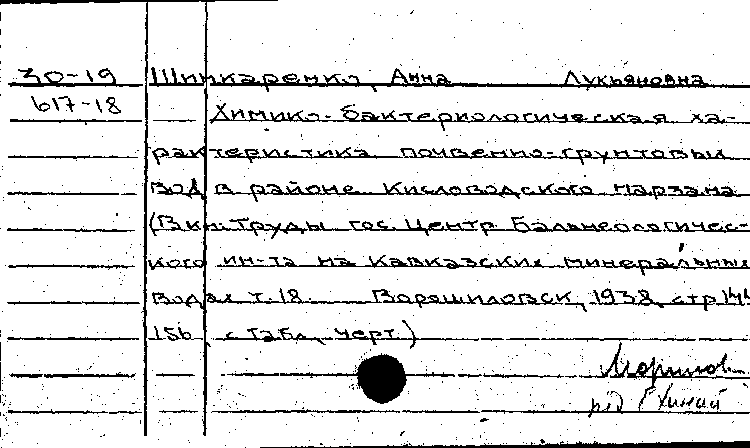 30-19 Шинкаренко, Анна Лукьяновна
617-18 Химико-бактериологическая ха-
рактеристика почвенно-грунтовых
вод в районе Кисловодского нарзана
(В кн: Труды гос. Центр Бальнеологичес-
кого ин-та на Кавказских минеральных
водах т. 18. Ворошиловск, 1938, стр 144
156, с табл, черт.)